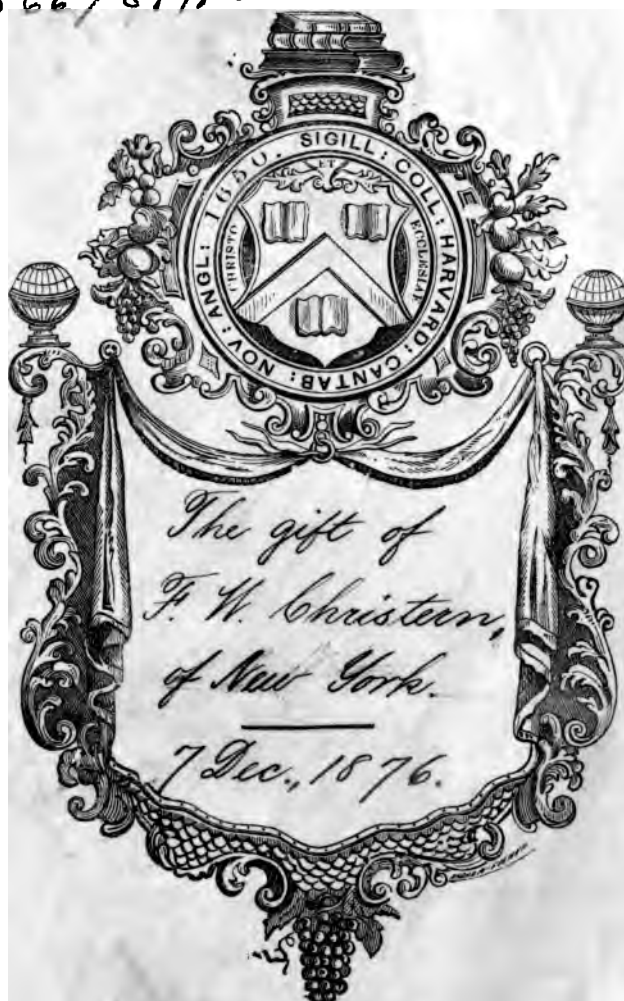 SIGILL: COLL: HARVARD: CANTAB: NOV: ANGL: 1650.
ET
CHRISTO
ECCLESIAE
The gift of
F. W. Christern,
of New York.
7 Dec., 1876.